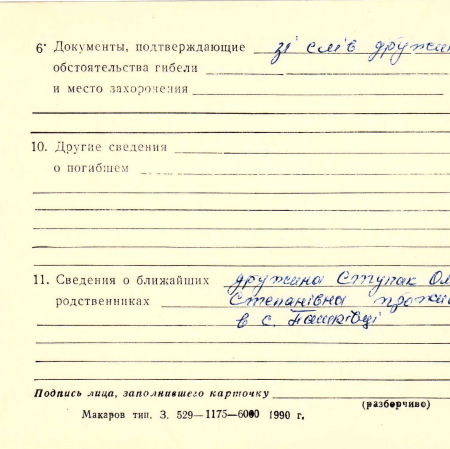 6. Документы, подтверждающие зі слів дружин
обстоятельства гибели
и место захоронения
10. Другие сведения
о погибшем
11. Сведения о ближайших дружина Ступак Ол
родственниках Степанівна прожи
в с. Пашківці
Подпись лица, заполнившего карточку
(разборчиво)
Макаров тип. З. 529—1175—6000 1990 г.